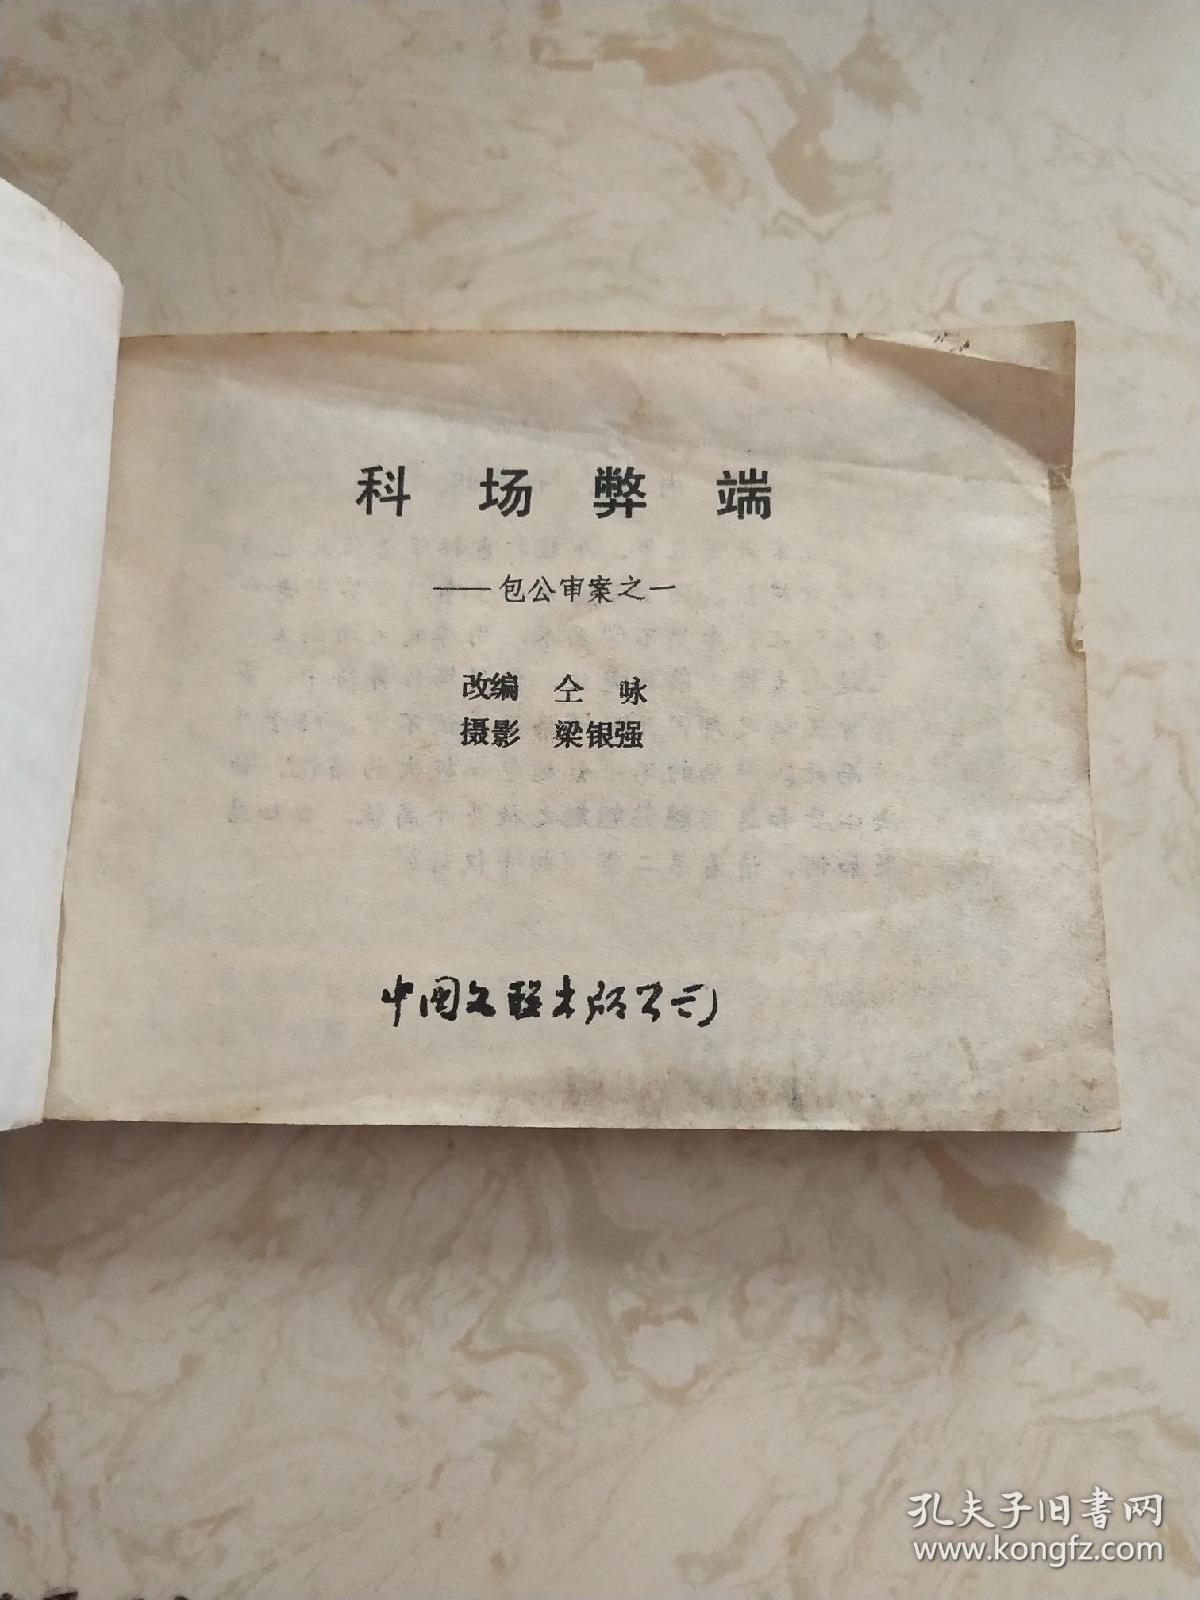 科场弊端
——包公审案之一
改编 仝咏
摄影 梁银强
中国文联出版公司
孔夫子旧书网
www.kongfz.com